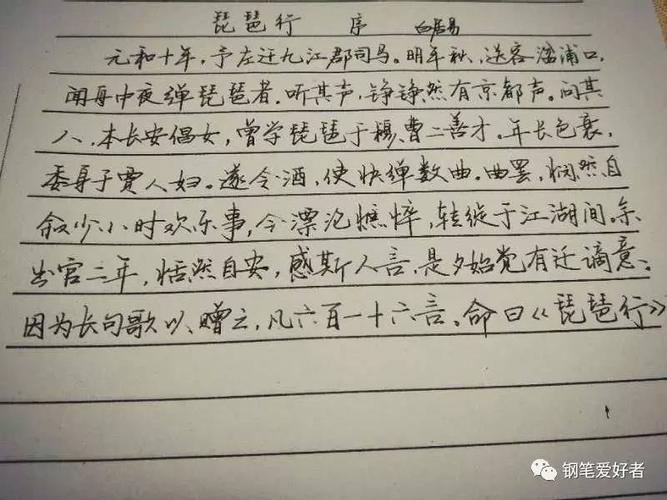 琵琶行 序 白居易
元和十年,予左迁九江郡司马。明年秋,送客湓浦口,
闻舟中夜弹琵琶者,听其声,铮铮然有京都声。问其
人,本长安倡女,曾学琵琶于穆、曹二善才。年长色衰,
委身于贾人妇。遂令酒,使快弹数曲。曲罢,悯然自
叙少小时欢乐事,今漂沦憔悴,转徙于江湖间。余
出官二年,恬然自安,感斯人言,是夕始觉有迁谪意。
因为长句歌以赠之,凡六百一十六言。命曰《琵琶行》
钢笔爱好者